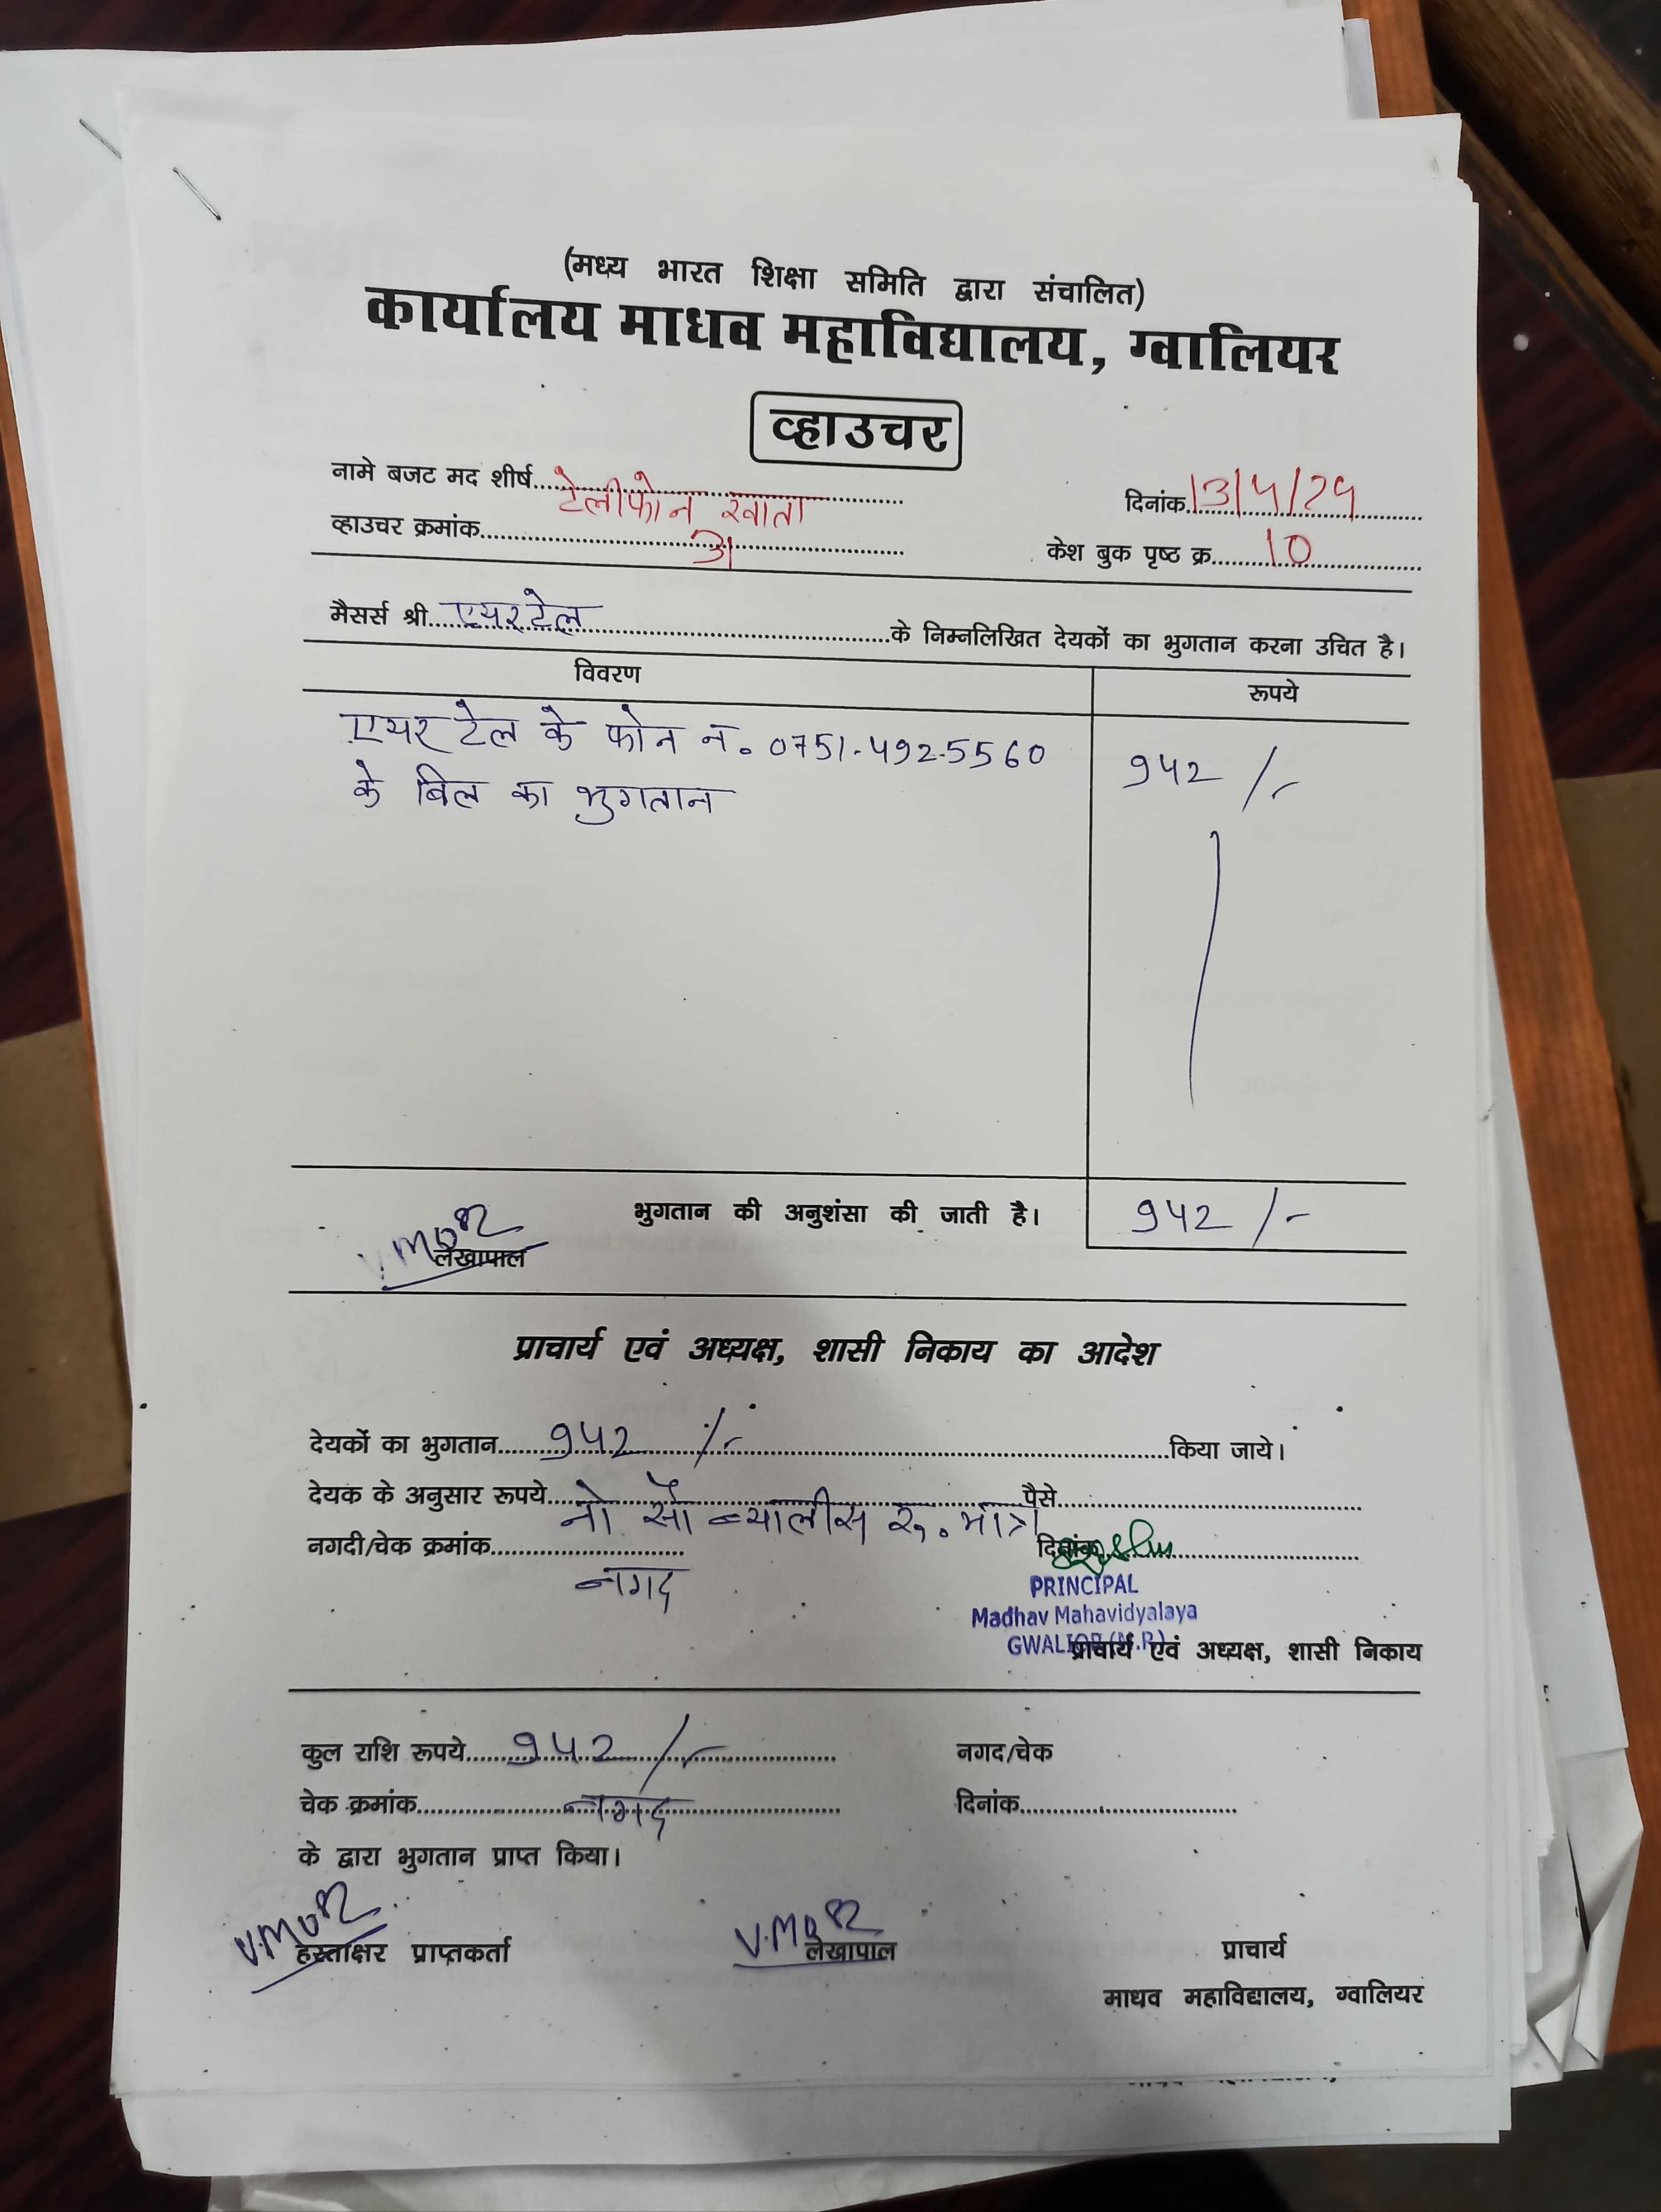 (मध्य भारत शिक्षा समिति द्वारा संचालित)
कार्यालय माधव महाविद्यालय, ग्वालियर
व्हाउचर
नामे बजट मद शीर्ष टेलीफोन खाता दिनांक 13/4/24
व्हाउचर क्रमांक 31 केश बुक पृष्ठ क्र. 10
मैसर्स श्री एयरटेल के निम्नलिखित देयकों का भुगतान करना उचित है।
विवरण रूपये
एयरटेल के फोन न. 0751-492-5560 942/-
के बिल का भुगतान
भुगतान की अनुशंसा की जाती है। 942/-
लेखापाल
प्राचार्य एवं अध्यक्ष, शासी निकाय का आदेश
देयकों का भुगतान 942/- किया जाये।
देयक के अनुसार रूपये नो सौ ब्यालीस रु. मात्र पैसे
नगदी/चेक क्रमांक नगद दिनांक
PRINCIPAL
Madhav Mahavidyalaya
GWALIOR (M.P.)
प्राचार्य एवं अध्यक्ष, शासी निकाय
कुल राशि रूपये 942/- नगद/चेक
चेक क्रमांक नगद दिनांक
के द्वारा भुगतान प्राप्त किया।
हस्ताक्षर प्राप्तकर्ता लेखापाल प्राचार्य
माधव महाविद्यालय, ग्वालियर